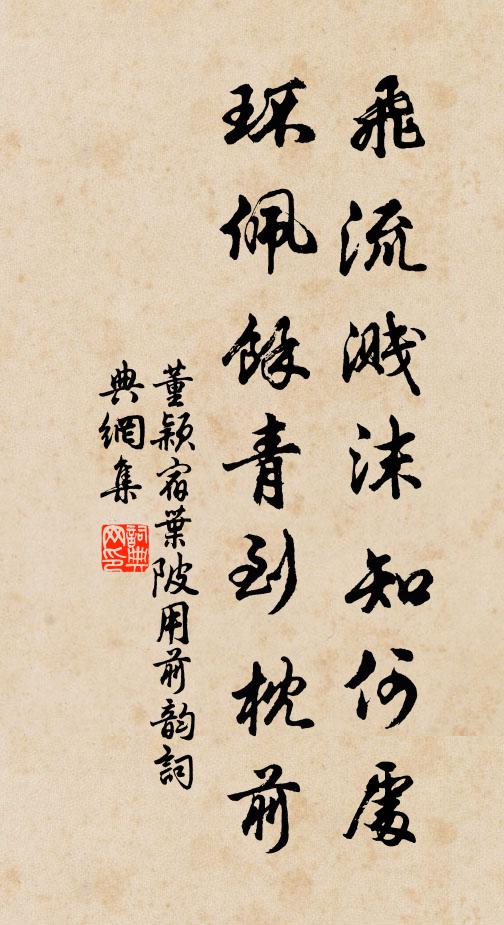 飛流濺沫知何處
環佩餘青到枕前
董穎宿葉陂用前韵詞
典網集
詞典
网印